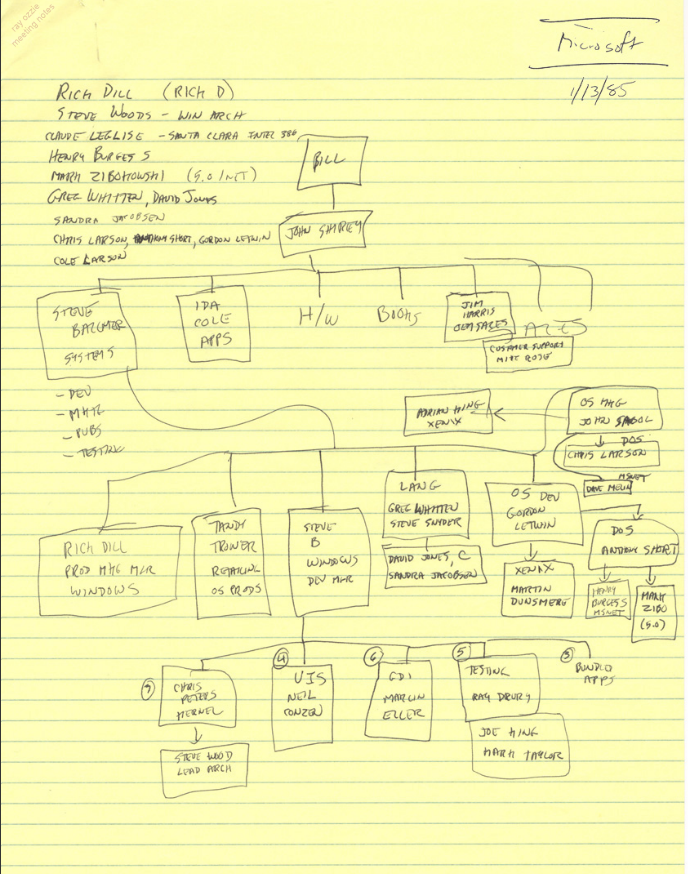 ray ozzie
meeting notes
Microsoft
1/13/85
RICH DILL (RICH D)
STEVE WOODS - WIN ARCH
CLAUDE LEGLISE - SANTA CLARA INTEL 386
HENRY BURGESS
MARK ZIBOKOWSKI (5.0/NET)
GREG WHITTEN, DAVID JONES
SANDRA JACOBSEN
CHRIS LARSON, ANTHONY SHORT, GORDON LETWIN
COLE LARSON
BILL
JOHN SHIRLEY
STEVE
BALLMER
SYSTEMS
- DEV
- MKTG
- PUBS
- TESTING
IDA
COLE
APPS
H/W
BOOKS
JIM
HARRIS
OEM SALES
SALES
CUSTOMER SUPPORT
MIKE ROSE
ADRIAN KING
XENIX
OS MKG
JOHN
DOS
CHRIS LARSON
MSNET
RICH DILL
PROD MKG MGR
WINDOWS
TANDY
TROWER
RETAILING
OS PRODS
STEVE
B
WINDOWS
DEV MGR
LANG
GREG WHITTEN
STEVE SNYDER
DAVID JONES, C
SANDRA JACOBSEN
OS DEV
GORDON
LETWIN
XENIX
MARTIN
DUNSMERE
DOS
ANTHONY SHORT
HENRY
BURGESS
MSNET
MARK
ZIBO
(5.0)
CHRIS
PETERS
KERNEL
STEVE WOOD
LEAD ARCH
4
UIS
NEIL
CONZEN
6
GDI
MARLIN
ELLER
5
TESTING
RAY DRURY
JOE KING
MARK TAYLOR
BUNDLD
APPS